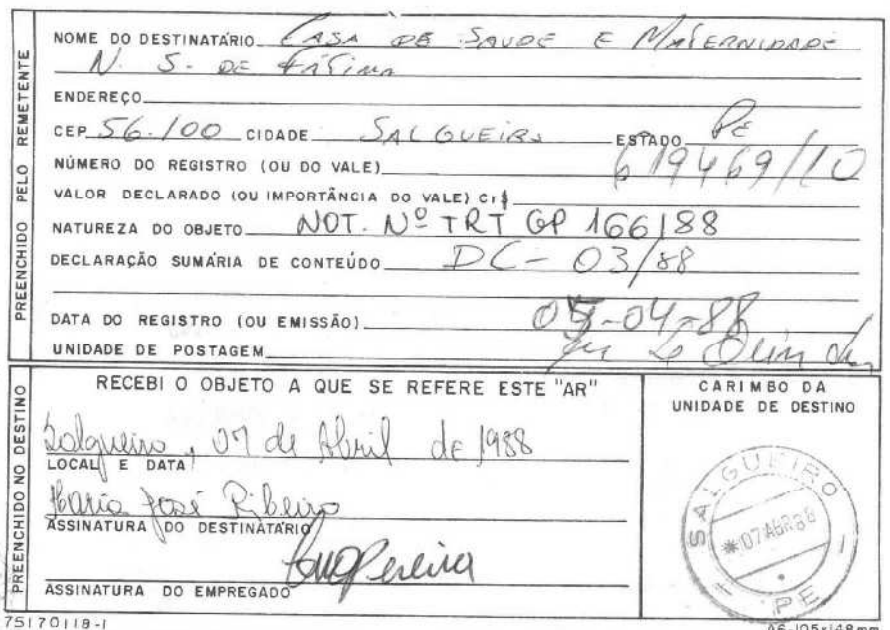 PREENCHIDO PELO REMETENTE
NOME DO DESTINATÁRIO CASA DE SAUDE E MATERNIDADE
N. S. DE FÁTIMA
ENDEREÇO
CEP 56.100 CIDADE SALGUEIRO ESTADO PE
NÚMERO DO REGISTRO (OU DO VALE) 619469/10
VALOR DECLARADO (OU IMPORTÂNCIA DO VALE) Cr$
NATUREZA DO OBJETO NOT. Nº TRT GP 166/88
DECLARAÇÃO SUMÁRIA DE CONTEÚDO DC - 03/88
DATA DO REGISTRO (OU EMISSÃO) 05-04-88
UNIDADE DE POSTAGEM
PREENCHIDO NO DESTINO
RECEBI O OBJETO A QUE SE REFERE ESTE "AR"
Salgueiro, 07 de Abril de 1988
LOCAL E DATA
Maria José Ribeiro
ASSINATURA DO DESTINATÁRIO
Pereira
ASSINATURA DO EMPREGADO
CARIMBO DA
UNIDADE DE DESTINO
SALGUEIRO
*07ABR88
PE
75170118-1
A6-105x148mm